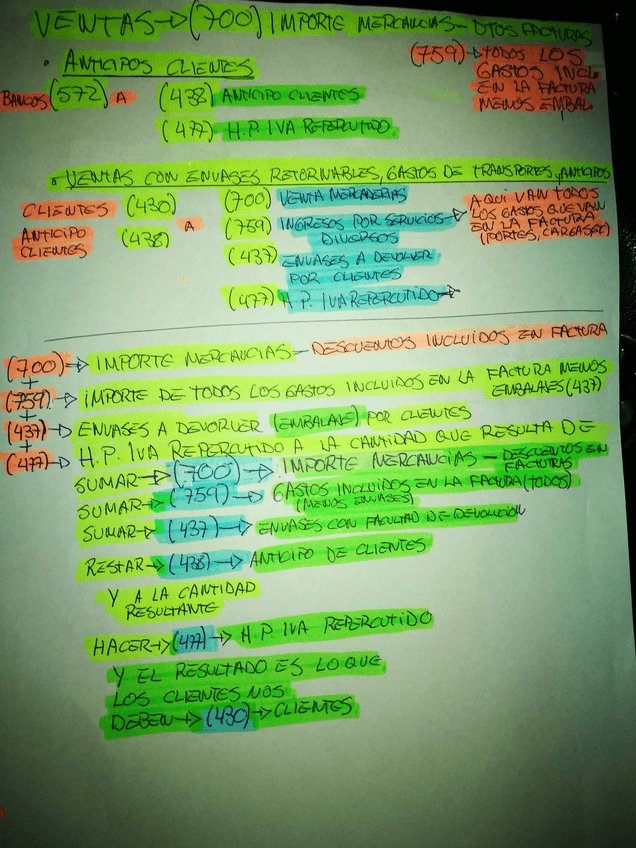 VENTAS → (700) IMPORTE MERCANCIAS - DTOS FACTURAS
· ANTICIPOS CLIENTES
(759) → TODOS LOS
GASTOS INCL
EN LA FACTURA
MENOS EMBAL
BANCOS (572) A (438) ANTICIPO CLIENTES
(477) H.P. IVA REPERCUTIDO
· VENTAS CON ENVASES RETORNABLES, GASTOS DE TRANSPORTES y ANTICIPOS
CLIENTES (430)
ANTICIPO CLIENTES (438)
A
(700) VENTA MERCADERIAS
(759) INGRESOS POR SERVICIOS →
DIVERSOS
(437) ENVASES A DEVOLVER
POR CLIENTES
(477) H.P. IVA REPERCUTIDO →
AQUI VAN TODOS
LOS GASTOS QUE VAN
EN LA FACTURA
(PORTES, CARGAS ETC)
(700) → IMPORTE MERCANCIAS - DESCUENTOS INCLUIDOS EN FACTURA
+
(759) → IMPORTE DE TODOS LOS GASTOS INCLUIDOS EN LA FACTURA MENOS
EMBALAJES (437)
+
(437) → ENVASES A DEVOLVER (EMBALAJE) POR CLIENTES
+
(477) → H.P. IVA REPERCUTIDO A LA CANTIDAD QUE RESULTA DE
SUMAR → (700) → IMPORTE MERCANCIAS - DESCUENTOS EN
FACTURAS
SUMAR → (759) → GASTOS INCLUIDOS EN LA FACTURA (TODOS)
(MENOS ENVASES)
SUMAR → (437) → ENVASES CON FACULTAD DE DEVOLUCION
RESTAR → (438) → ANTICIPO DE CLIENTES
Y A LA CANTIDAD
RESULTANTE
HACER → (477) → H.P. IVA REPERCUTIDO
Y EL RESULTADO ES LO QUE
LOS CLIENTES NOS
DEBEN → (430) → CLIENTES